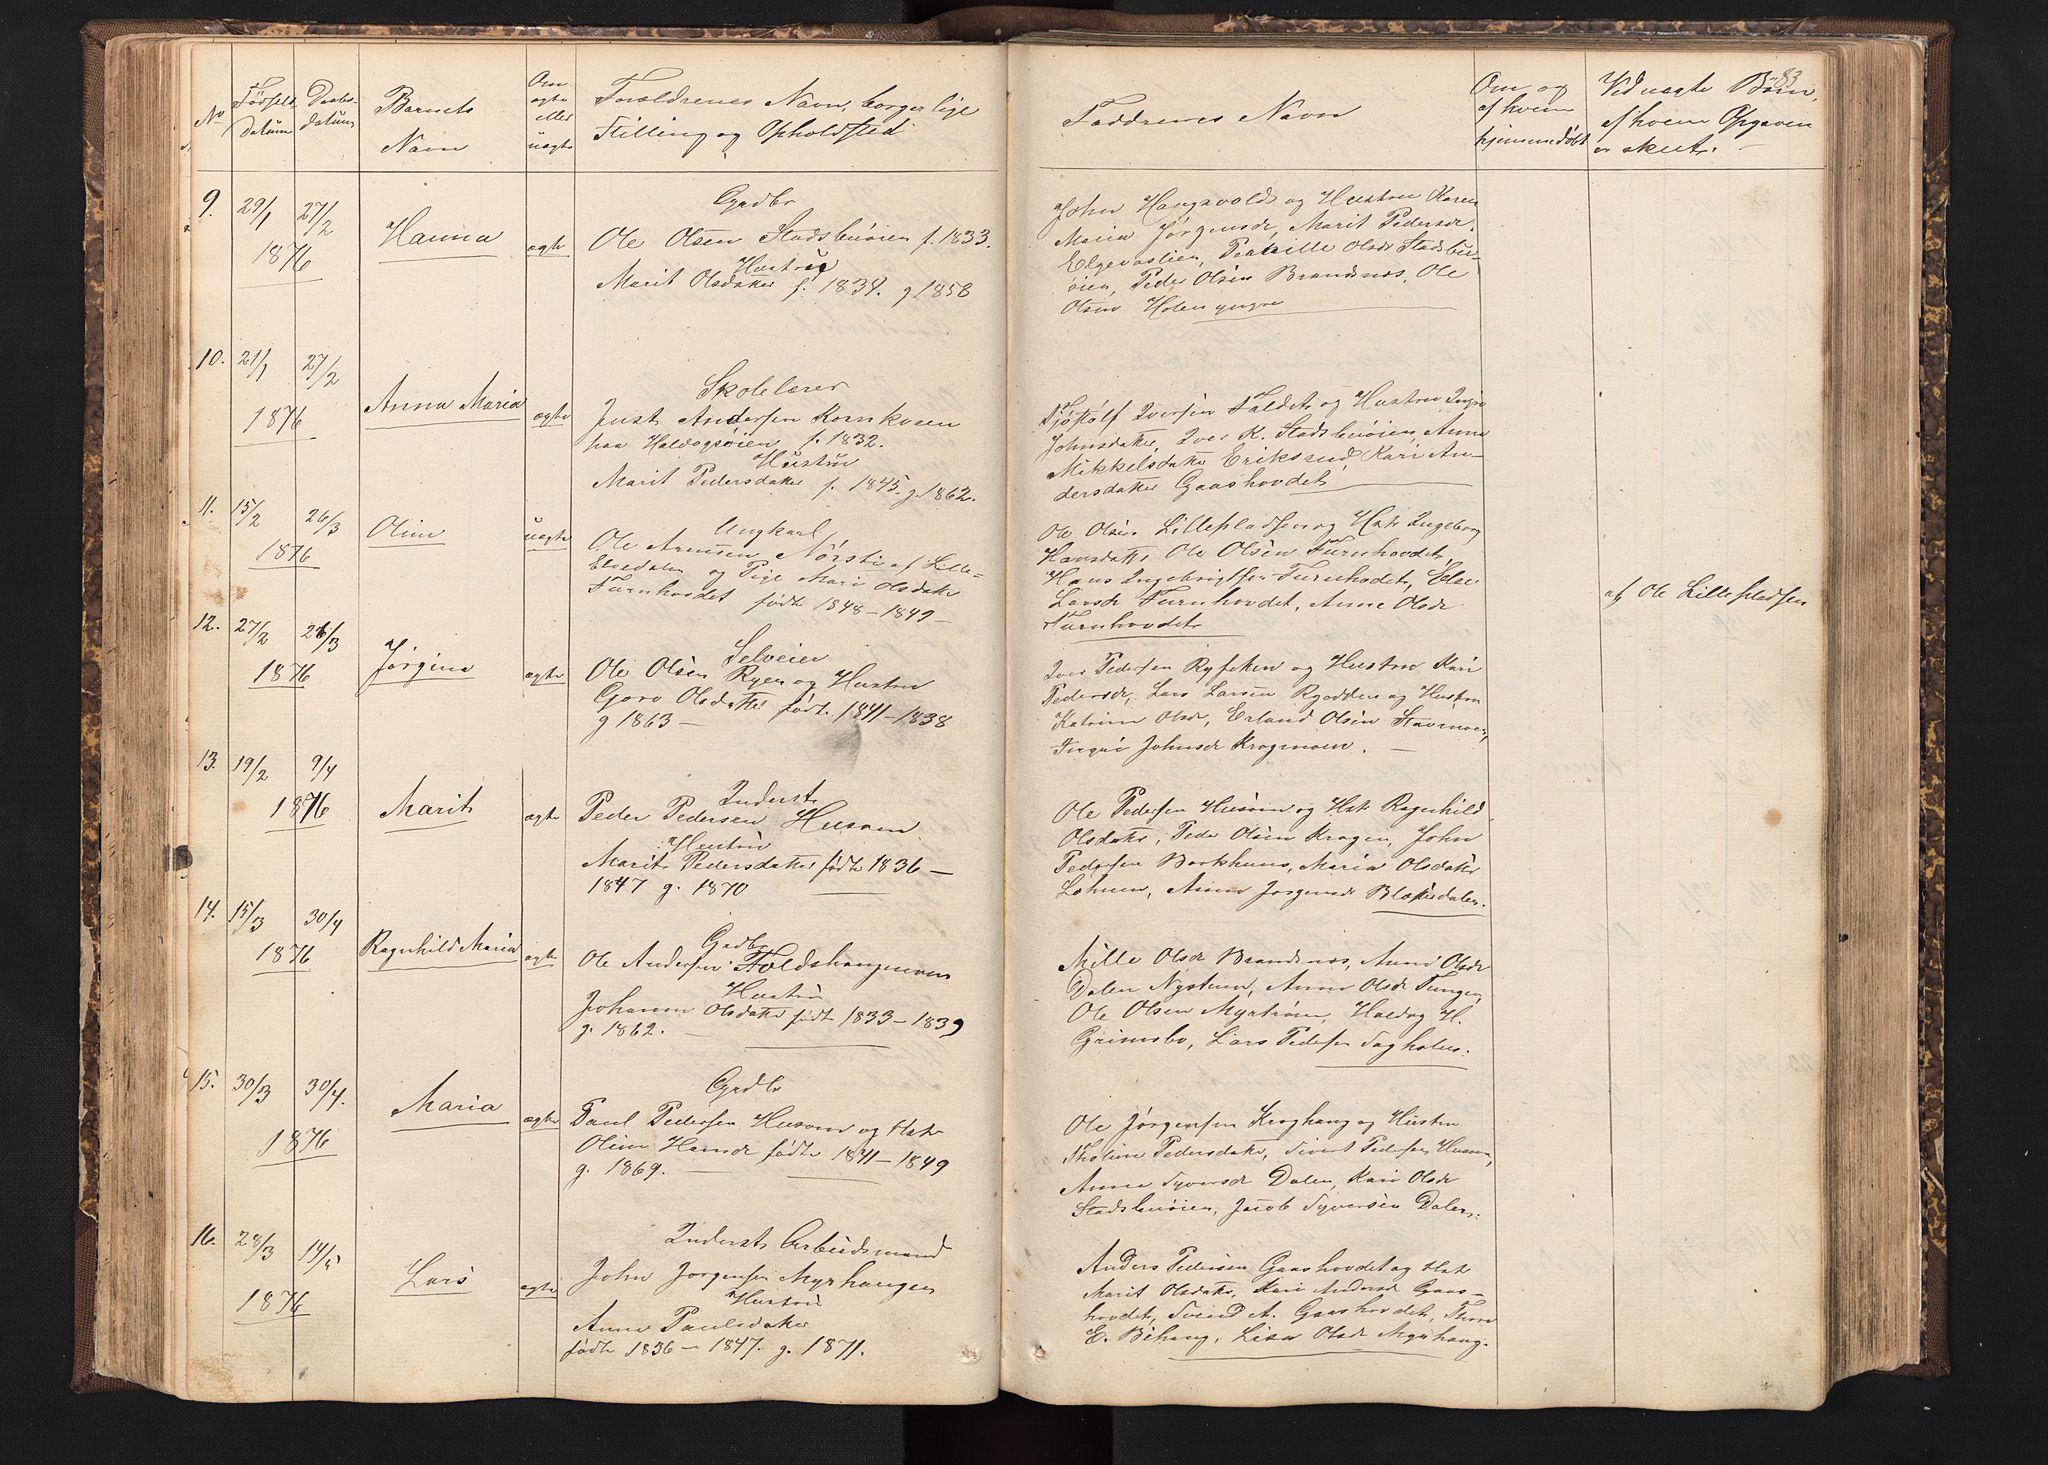 No
Fødsels
Datum
Daabs-
datum
Barnets
Navn
Om
ægte
eller
uægte
Forældrenes Navn, borgerlige
Stilling og Opholdsted
Faddrenes Navn
Om og
af hvem
hjemmedøbt
Ved uægte Børn,
af hvem Opgaven
er skeet.
83
9.
29/1
27/2
1876
Hanna
ægte
Grdbr
Ole Olsen Stadsbuøien f. 1833.
Hustru
Marit Olsdatter f. 1839. g 1858
John Haugsvold og Hustru Karen
Maria Jørgensdr, Marit Pedersdr.
Elgevaslien, Pernille Olsdr Stadsbu-
øien, Peder Olsen Brandsnes, Ole
Olsen Holen yngre
10.
21/1
27/2
1876
Anna Maria
ægte
Skolelærer
Just Andersen Kornkveen
paa Haldogsøien f. 1832.
Hustru
Marit Pedersdatter f. 1845. g. 1862.
Iversen Faldet og Hustru Ingr
Johnsdatter, Iver K. Stadsbuøien, Anne
Mikkelsdatter Eriksrud, Kari An-
dersdatter Gaashovdet
11.
15/2
26/3
1876
Oline
uægte
Ungkarl
Ole Arnesen Nørsti af Lille-
Elvedalen og Pige Mari Olsdatter
Furuhovdet født 1848 - 1849 -
Ole Olsen Lillepladsen og Hst. Ingeborg
Hansdatter Ole Olsen Furuhovdet,
Hans Ingebrigtsen Furuhovdet, Else
Larsdr Furuhovdet, Anne Olsdr
Furuhovdet
af Ole Lillepladsen
12.
27/2
26/3
1876
Jørgine
ægte
Selveier
Ole Olsen Ryen og Hustru
Goro Olsdatter født 1841 - 1838
g 1863 -
Iver Pedersen Ryeken og Hustru Kari
Pedersdr, Lars Larsen Ryodden og Hustru
Katrine Olsdr, Erland Olsen Stavmoen,
Johnsdr Krogmoen.
13.
19/2
9/4
1876
Marit
ægte
Inderst
Peder Pedersen Husom
Hustru
Marit Pedersdatter født 1836 -
1847 g. 1870
Ole Pedersen Husom og Hst. Ragnhild
Olsdatter, Peder Olsen Krogen, John
Pedersen Barkhuus, Maria Olsdatter
Lohnen, Anne Jørgensdr Blokkedalen.
14.
15/3
30/4
1876
Ragnhild Maria
ægte
Grdbr
Ole Andersen Foldshaugmoen
Hustru
Johanne Olsdatter født 1833 - 1839
g. 1862.
Mille Olsdr Brandsnes, Anne Olsdr
Dalen Nystuen, Anne Olsdr Tungen,
Ole Olsen Myrtrøen, Haldog H.
Grimsbo, Lars Pedersen
15.
30/3
30/4.
1876
Maria
ægte
Grdbr
Paul Pedersen Husom og Hst.
Oline Hansdr født 1841 - 1849
g. 1869.
Ole Jørgensen Kroghaug og Hustru
Tholine Pedersdatter, Sivert Pedersen Husom,
Anne Syversdr Dalen, Kari Olsdr
Stadsbuøien, Jacob Syversen Dalen.
16.
28/3
14/5
1876
Lars
ægte
Inderst Arbeidsmand
John Jørgensen Myrhaugen
Hustru
Anne Paulsdatter
født 1836 - 1847. g. 1871.
Anders Pedersen Gaashovdet og Hst.
Marit Olsdatter, Kari Andersd Gaas-
hovdet, Svend A. Gaashovdet, Thore
E. Bihaug, Lisa Olsdr Myrhaug.